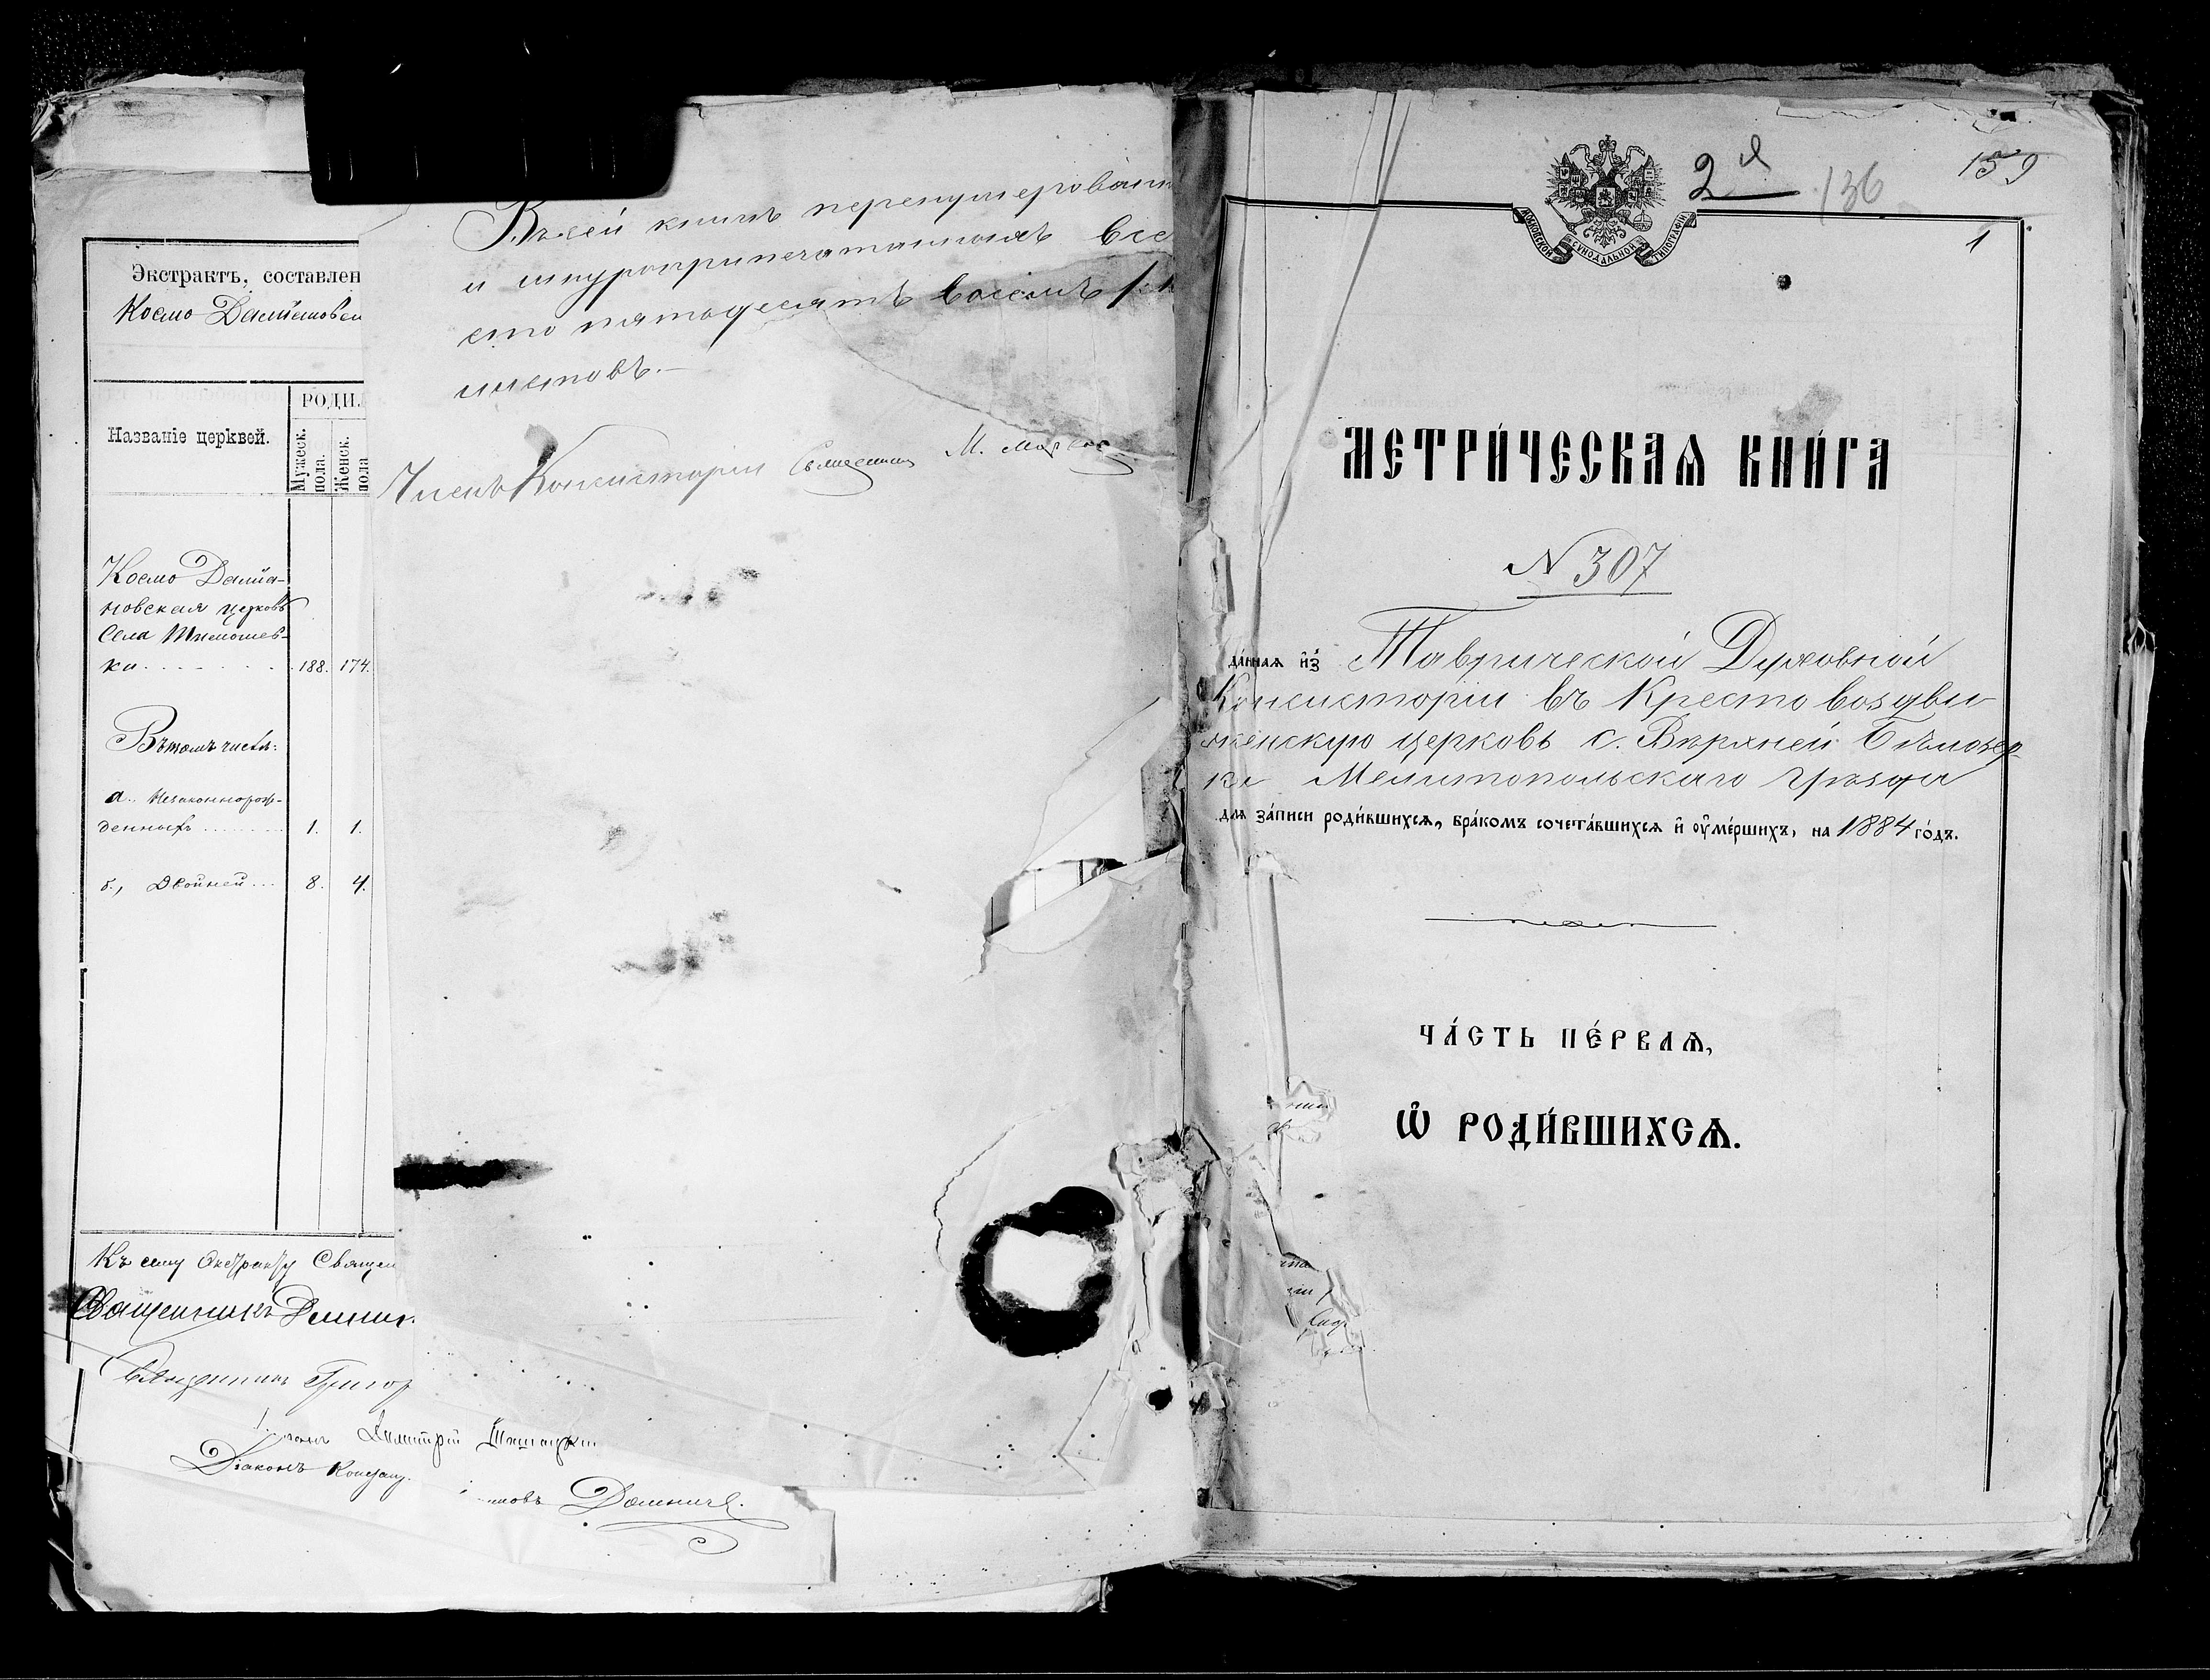 Экстрактъ, составлен
Космо Даміановск
Названіе церквей.
РОДИЛ
Мужеск.
пола.
Женск.
пола
Космо Даміа-
новская церковь
Села Тимошев-
ки 188. 174.
Въ томъ числѣ:
а., Незаконнорож-
денныхъ 1. 1.
б., Двойней 8. 4.
Къ сему Экстракту Священ
Священникъ
Священникъ Григор
Димитрій
Діаконъ
Въ сей книгѣ перенумерован
и шнуроприпечатанныхъ все
сто пятьдесятъ восемь
листовъ.—
Членъ Консисторіи Священникъ М.
2я 136 159
1
МОСКОВСКОЙ СИНОДАЛЬНОЙ ТИПОГРАФІИ
МЕТРИ́ЧЕСКАѦ КНИ́ГА
N 307
да́ннаѧ и҆з̾ Таврической Духовной
Консисторіи въ Кресто воздви
женскую церковь с. Верхней Бѣлозер
ки Мелитопольскаго Уѣзда
длѧ за́писи роди́вшихсѧ, бра́комъ сочета́вшихсѧ и҆ оу҆ме́ршихъ, на 1884 го́дъ.
ЧА́СТЬ ПЕ́РВАѦ,
Ѡ҆ РОДИ́ВШИХСѦ.